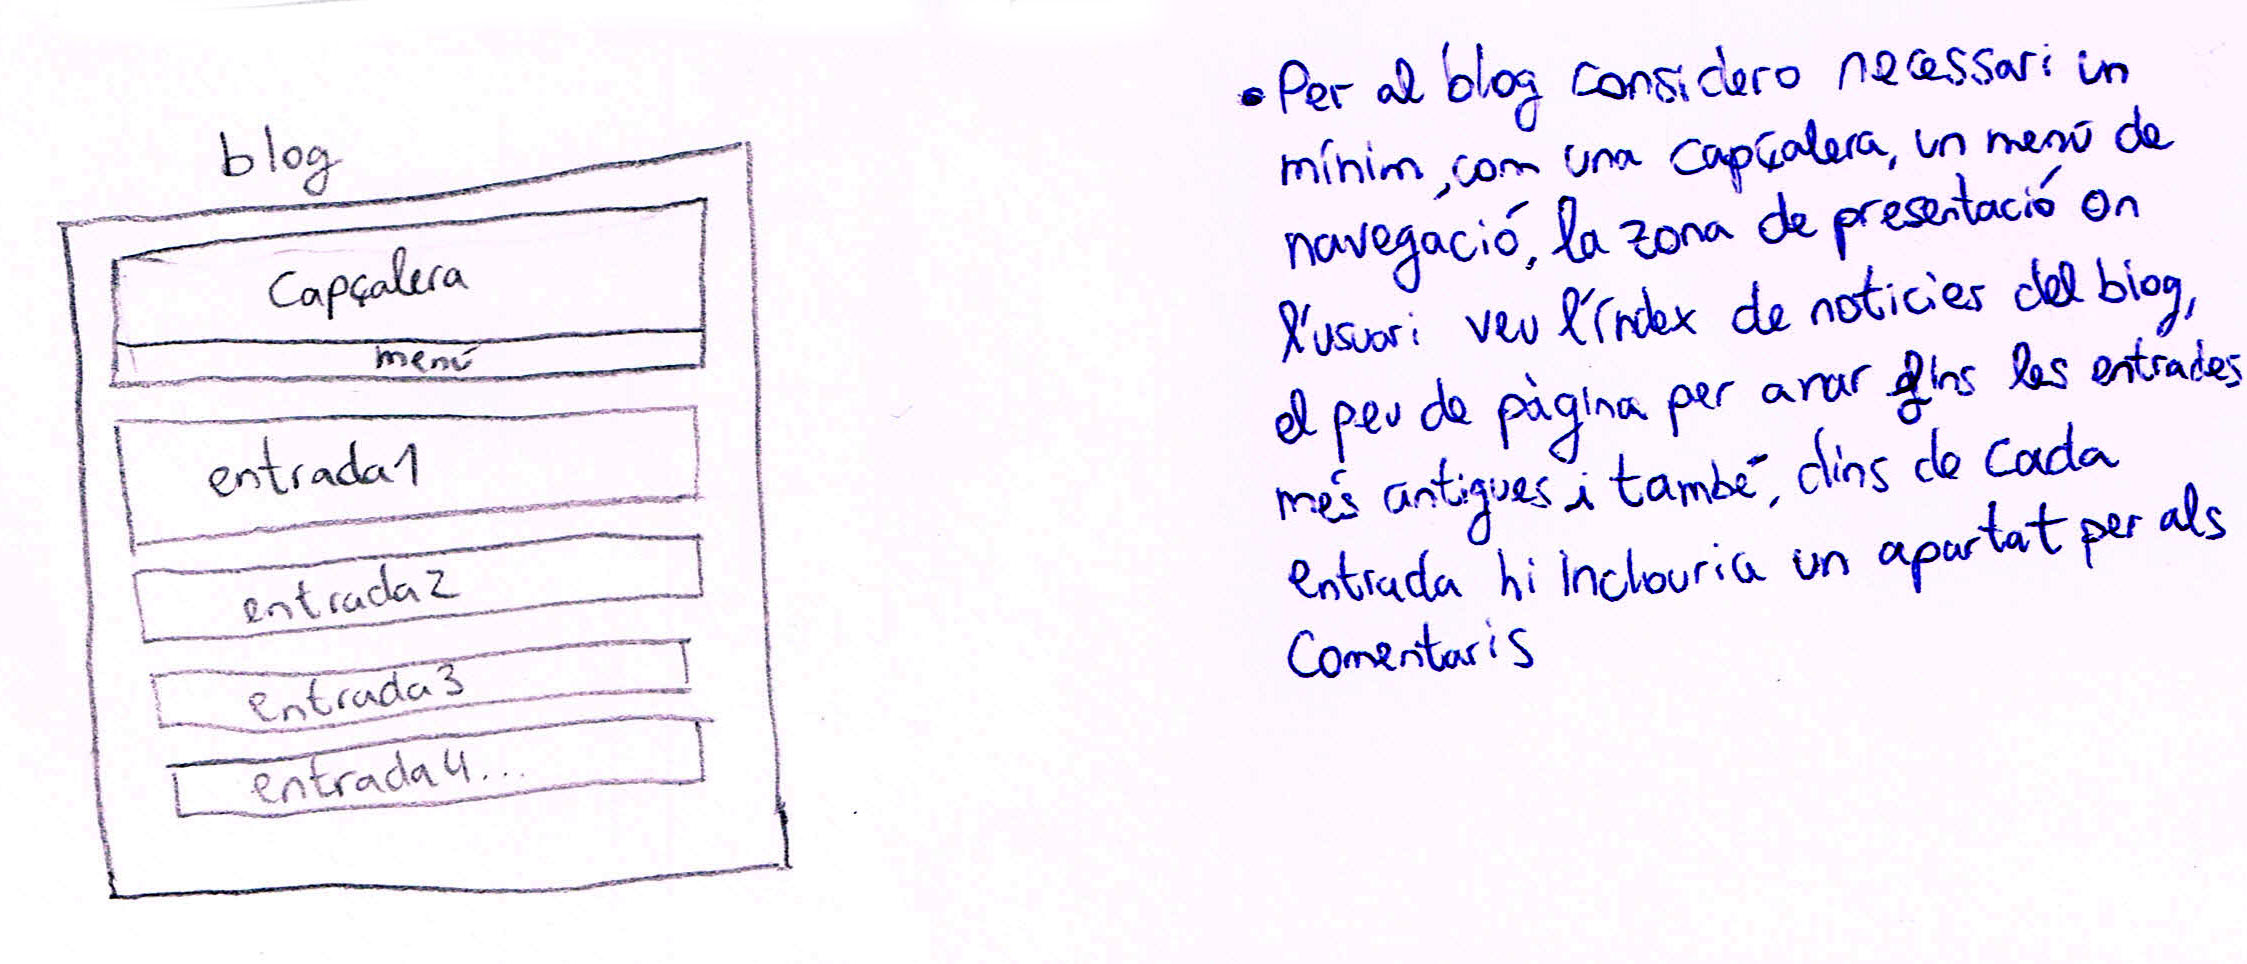 blog
Capçalera
menú
entrada1
entrada2
entrada3
entrada4...
• Per al blog considero necessari un
mínim, com una capçalera, un menú de
navegació, la zona de presentació on
l'usuari veu l'índex de noticies del blog,
el peu de pàgina per anar fins les entrades
més antigues i també, dins de cada
entrada hi inclouria un apartat per als
Comentaris